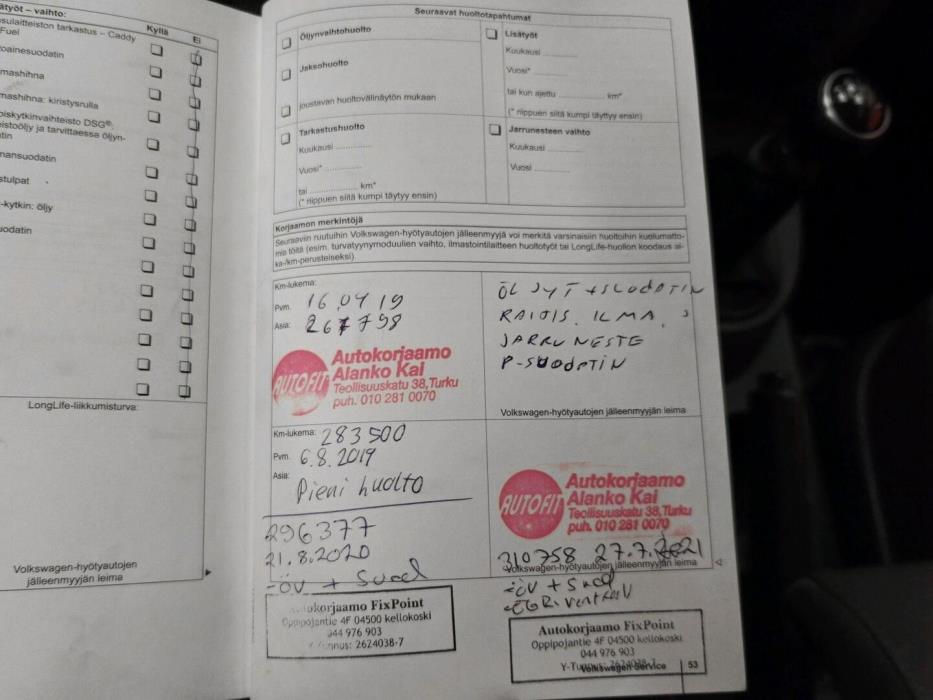 työt – vaihto:
Kyllä
Ei
sulaitteiston tarkastus – Caddy
Fuel
oainesuodatin
mashihna
mashihna: kiristysrulla
oiskytkinvaihteisto DSG®:
eistoöljy ja tarvittaessa öljyn-
tin
mansuodatin
stulpat
-kytkin: öljy
uodatin
LongLife-liikkumisturva:
Volkswagen-hyötyautojen
jälleenmyyjän leima
Seuraavat huoltotapahtumat
Öljynvaihtohuolto
Jaksohuolto
joustavan huoltovälinäytön mukaan
Tarkastushuolto
Kuukausi
Vuosi*
tai km*
(* riippuen siitä kumpi täytyy ensin)
Lisätyöt
Kuukausi
Vuosi*
tai kun ajettu km*
(* riippuen siitä kumpi täyttyy ensin)
Jarrunesteen vaihto
Kuukausi
Vuosi
Korjaamon merkintöjä
Seuraaviin ruutuihin Volkswagen-hyötyautojen jälleenmyyjä voi merkitä varsinaisiin huoltoihin kuulumatto-
mia töitä (esim. turvatyynymoduulien vaihto, ilmastointilaitteen huoltotyöt tai LongLife-huollon koodaus ai-
ka-/km-perusteiseksi).
Km-lukema:
Pvm. 16.04 19
Asia: 267798
AUTOFIT
Autokorjaamo
Alanko Kai
Teollisuuskatu 38, Turku
puh. 010 281 0070
ÖLJYT + SUODATIN
RAITIS. ILMA,
JARRUNESTE
P-SUODATIN
Volkswagen-hyötyautojen jälleenmyyjän leima
Km-lukema: 283500
Pvm. 6.8.2019
Asia: Pieni huolto
AUTOFIT
Autokorjaamo
Alanko Kai
Teollisuuskatu 38, Turku
puh. 010 281 0070
296377
21.8.2020
-öv + Suod
Autokorjaamo FixPoint
Oppipojantie 4F 04500 kellokoski
044 976 903
Y-Tunnus: 2624038-7
310758 27.7.2021
Volkswagen-hyötyautojen jälleenmyyjän leima
-öv + Suod
Autokorjaamo FixPoint
Oppipojantie 4F 04500 kellokoski
044 976 903
Y-Tunnus: 2624038-7
Volkswagen Service
53